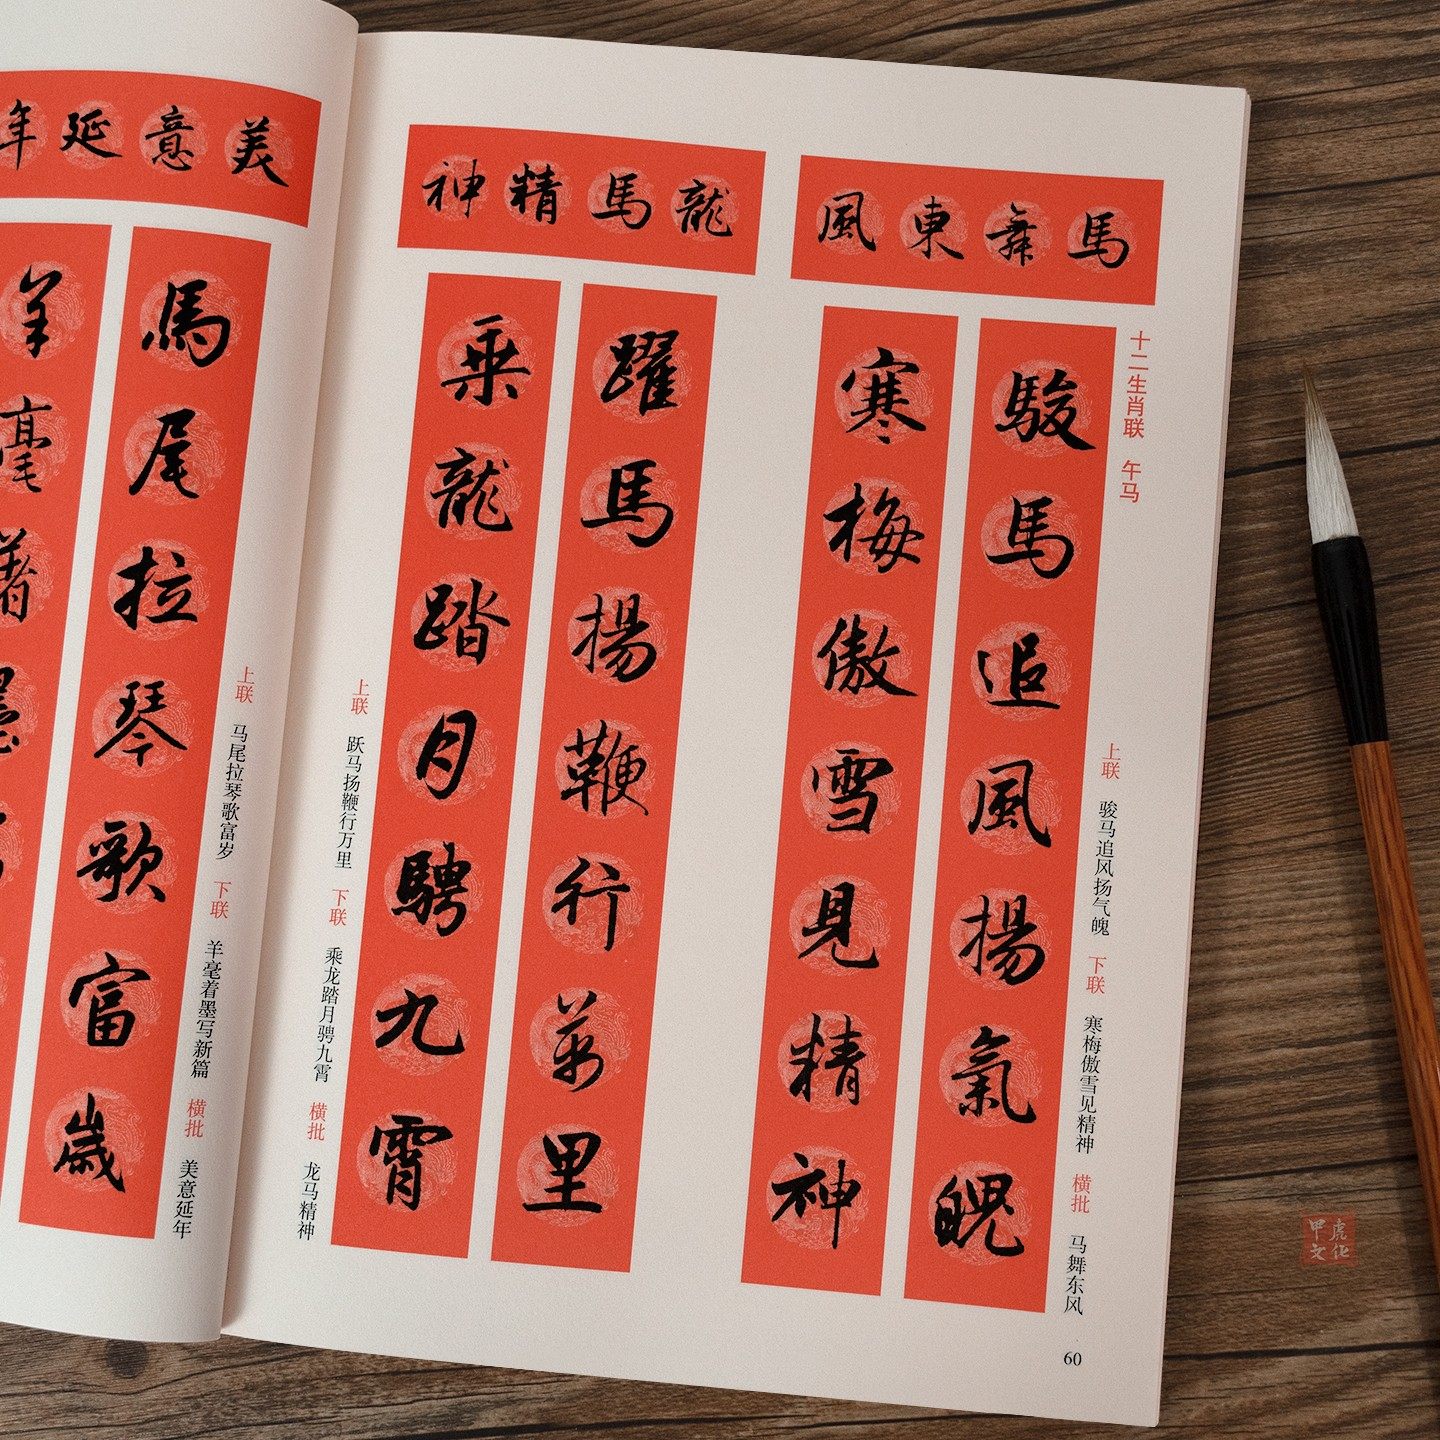 十二生肖联 午马
馬舞東風
駿馬追風揚氣魄
寒梅傲雪見精神
上联 骏马追风扬气魄 下联 寒梅傲雪见精神 横批 马舞东风
龍馬精神
躍馬揚鞭行萬里
乘龍踏月騁九霄
上联 跃马扬鞭行万里 下联 乘龙踏月骋九霄 横批 龙马精神
60
美意延年
馬尾拉琴歌富歲
羊毫著墨
上联 马尾拉琴歌富岁 下联 羊毫着墨写新篇 横批 美意延年
虎化
甲文